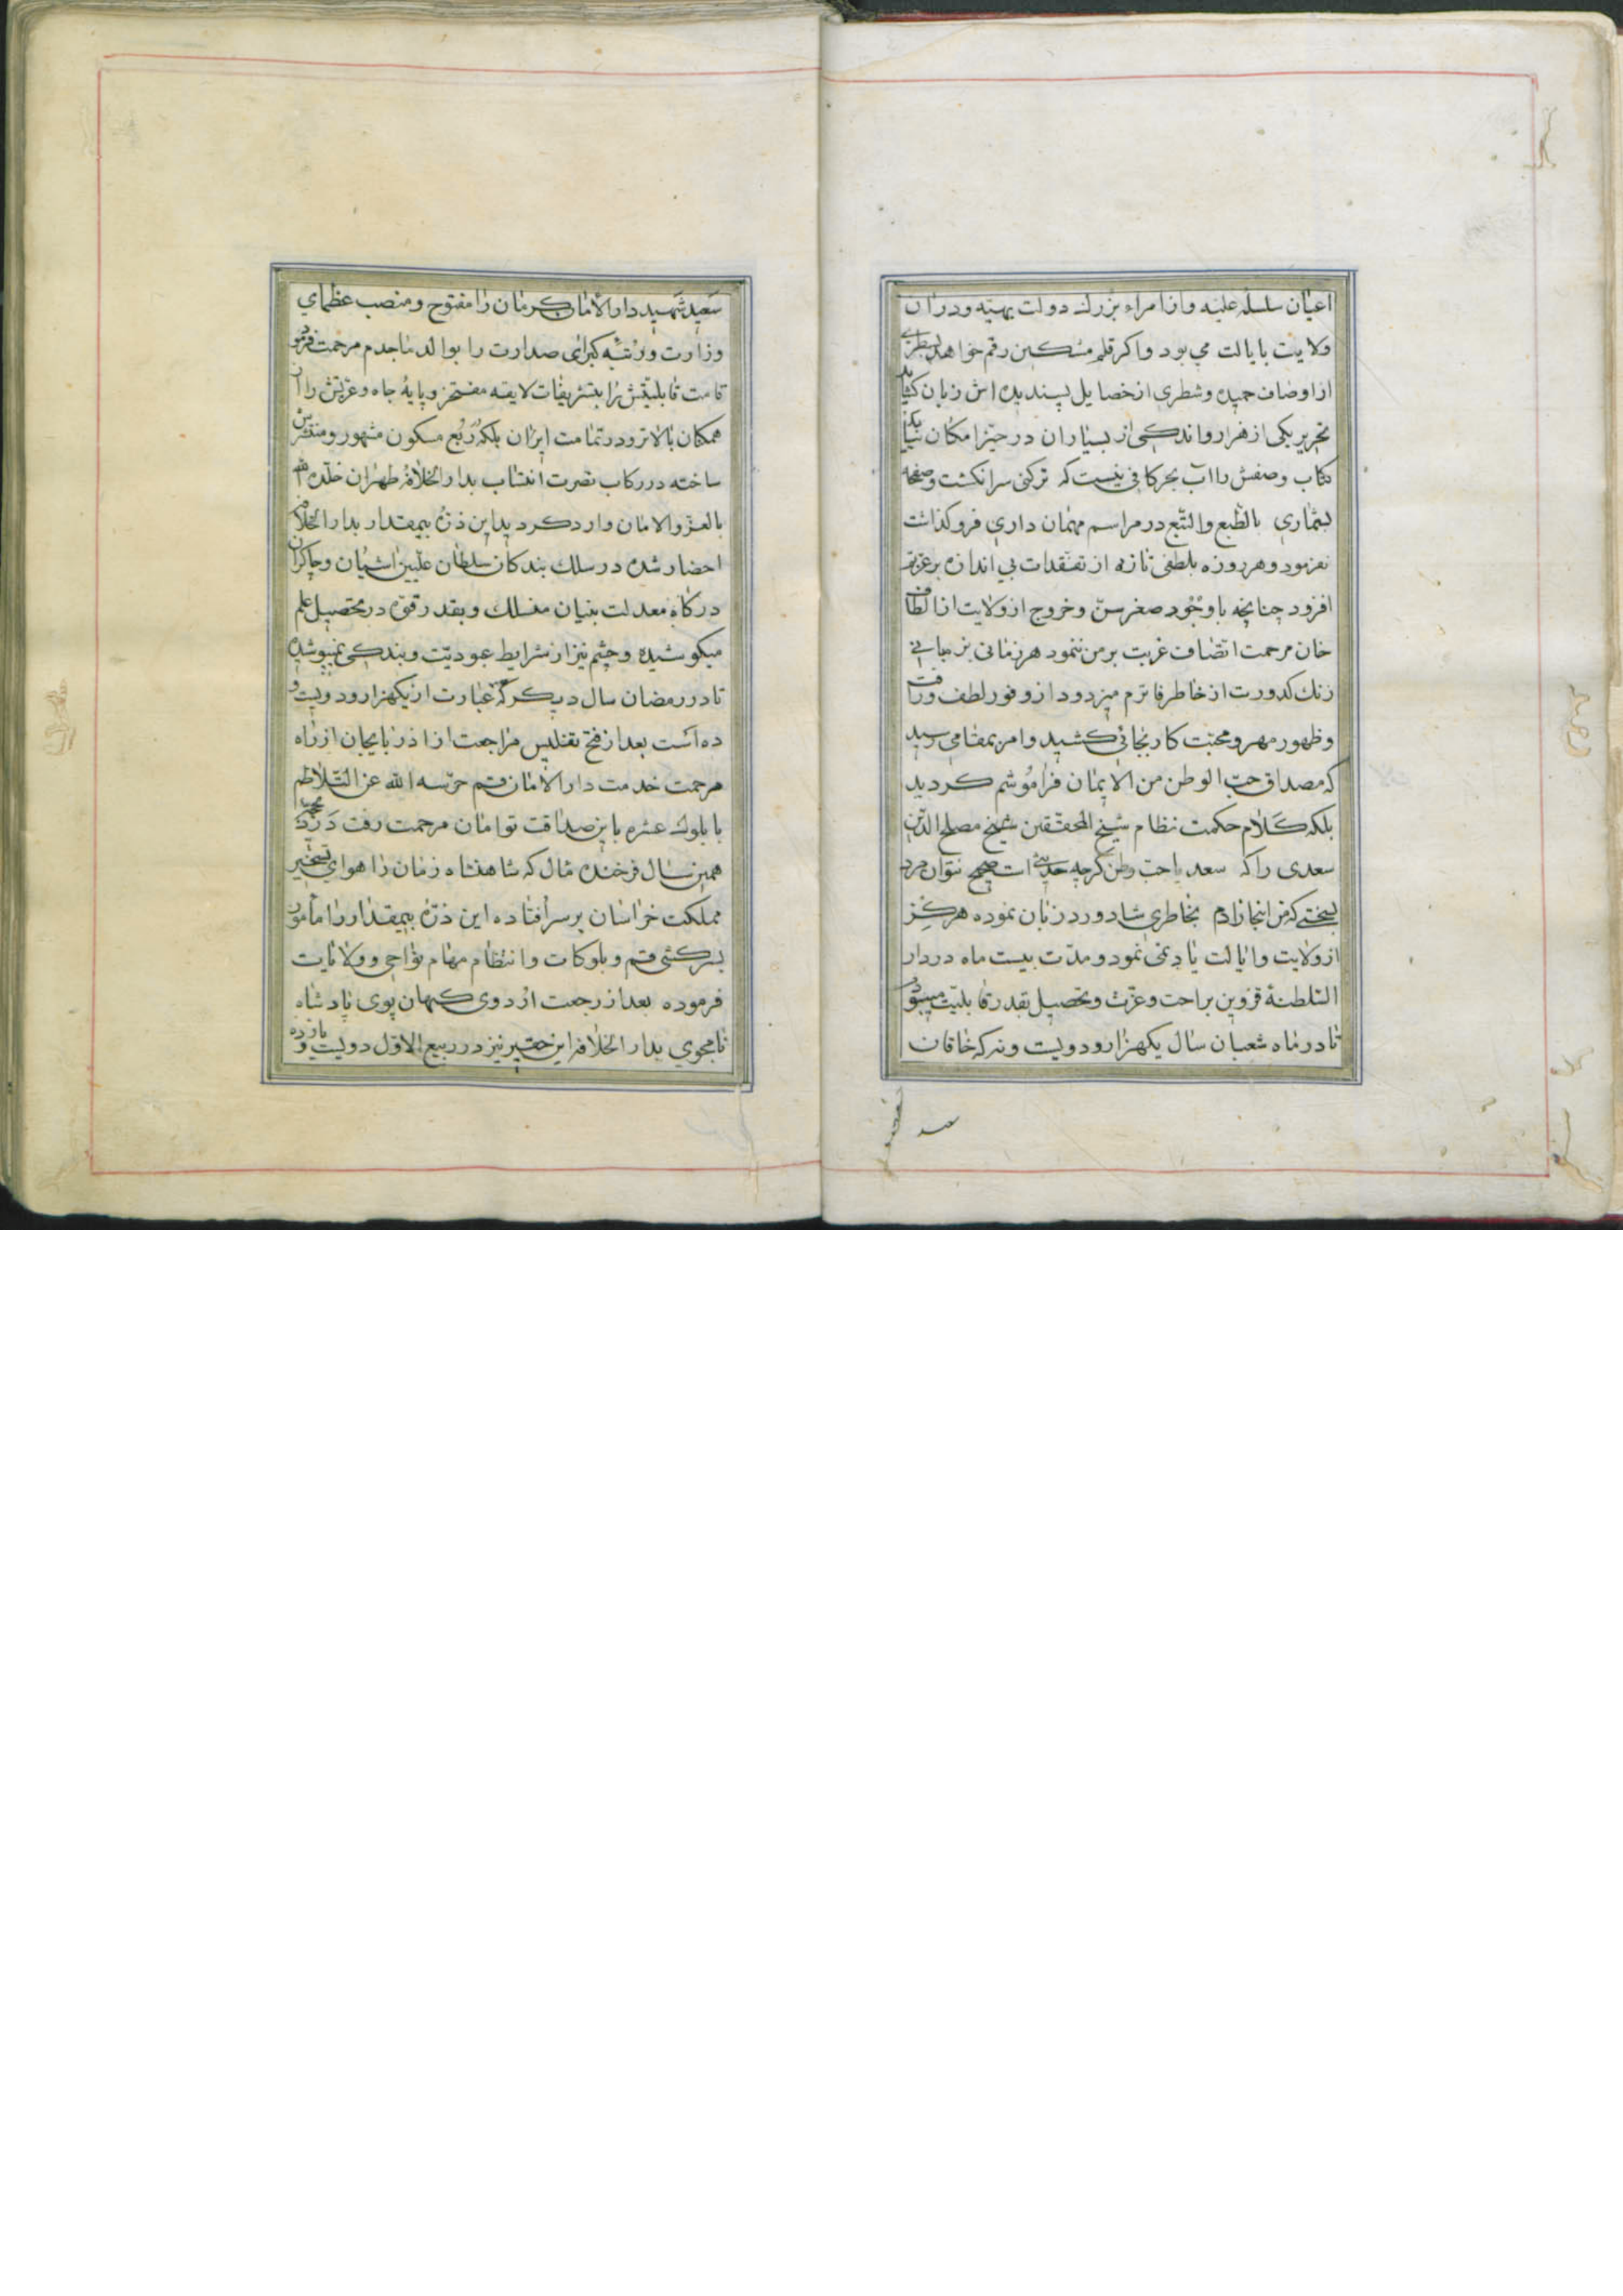 اعیان سلسله علیه و از امراء بزرك دولت بهیّه و در ان
ولایت بایالت می بود و اکر قلم مشکین رقم خواهد بسطری
از اوصاف حمیده و شطری از خصایل پسندیده اش زبان کشاید
تحریر یکی از هزار و اندکی از بسیاران در حیّز امکان نیاید
کتاب وصفش را آب بحر کافی نیست که ترکنی سر انکشت و صفحه
بشماری بالطّبع والتّبع در مراسم مهمان داری فرو کذاشت
نفرمود و هر روزه بلطفی تازه از تفقدات بی اندازه بر عزتم
افزود چنانچه باوجود صغر سنّ و خروج از ولایت از الطاف
خان مرحمت اتصاف غربت بر من ننمود هر زمانی بزبانی
زنك کدورت از خاطر فاترم میزدود از وفور لطف و رافت
و ظهور مهر و محبّت کار بجائی کشید و امر بمقامی رسید
که مصداق حبّ الوطن من الایمان فراموشم کردید
بلکه کلام حکمت نظام شیخ المحقّقین شیخ مصلح الدّین
سعدی را که سعدیا حب وطن کرچه حدیثی است صحیح نتوان مرد
بسختی که من اینجا زادم بخاطری شاد ورد زبان نموده هرکز
از ولایت و ایالت یاد نمی نمود و مدّت بیست ماه در دار
السّلطنهٔ قزوین براحت و عزّت و تحصیل بقدر قابلیّت میبود
تا در ماه شعبان سال یکهزار و دویست و نه که خاقان
سعید
سعید شهید دار الامان کرمان را مفتوح و منصب عظمای
وزارت و رتبه کبرای صدارت را بوالد ماجدم مرحمت فرمود
قامت قابلیّتش را بتشریفات لایقه مفتخر و پایهٔ جاه و عزّتش را از
همکنان بالاتر و در تمامت ایران بلکه ربع مسکون مشهور و منتشرش
ساخته در رکاب نصرت انتساب بدار الخلافهٔ طهران
بالعزّ والامان وارد کردید این ذرّهٔ بیمقدار بدار الخلافه
احضار شده در سلك بندکان سلطان علّیین اشیان و چاکران
درکاه معدلت بنیان منسلك و بقدر قوّه در تحصیل علم
میکوشیده و چشم نیز از شرایط عبودیّت و بندکی نمیپوشیده
تا در رمضان سال دیکر که عبارت از یکهزار و دویست و
ده است بعد از فتح تفلیس مراجعت از اذربایجان از راه
مرحمت خدمت دار الامان قم حرّسه الله عن التّلاطم
با بلوك عشره باین صداقت توامان مرحمت رفت
همین سال فرخنده مثال که شاهنشاه زمان را هوای تسخیر
مملکت خراسان بر سر افتاده این ذرّهٔ بیمقدار را مأمور
بسرکشی قم و بلوکات و انتظام مهام نواحی و ولایات
فرموده بعد از رجعت اردوی کیهان پوی پادشاه
نامجوی بدار الخلافه این حقیر نیز در ربیع الاوّل دویست و یازده